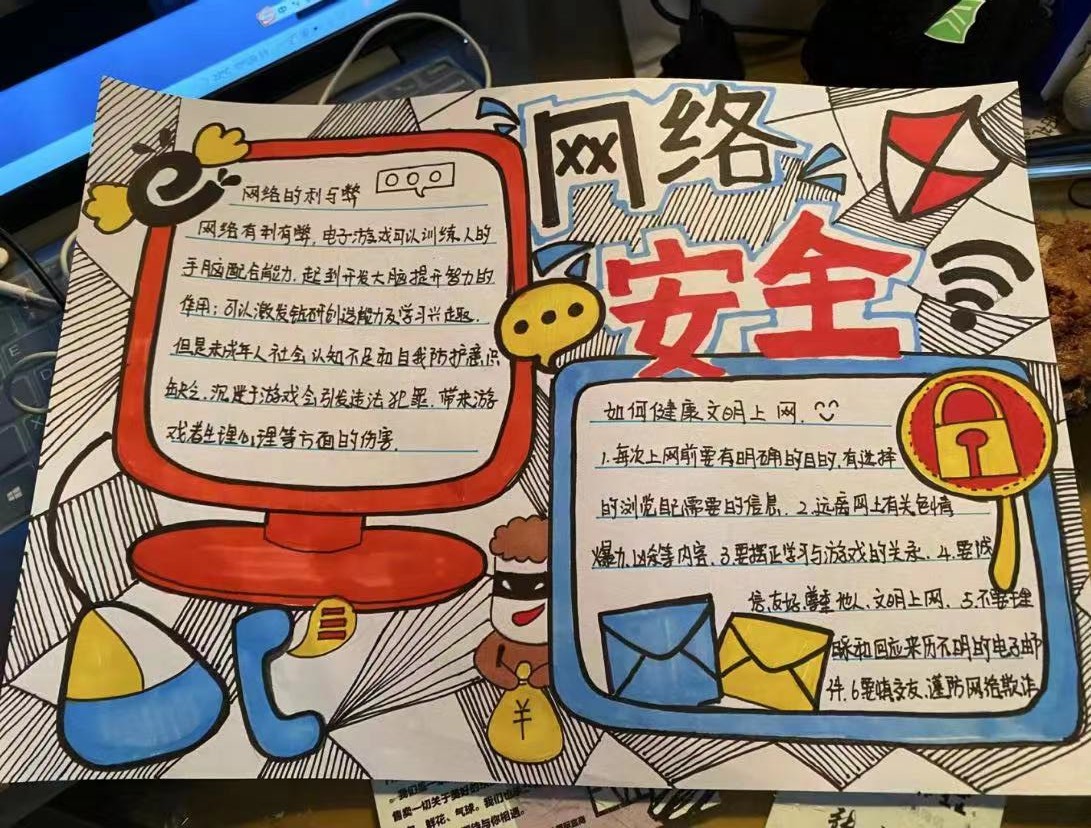 网络
安全
网络的利与弊
网络有利有弊,电子游戏可以训练人的
手脑配合能力,起到开发大脑提升智力的
作用;可以激发钻研创造能力及学习兴趣.
但是未成年人社会认知不足和自我防护意识
缺乏,沉迷于游戏会引发违法犯罪.带来游
戏者生理心理等方面的伤害.
如何健康文明上网.
1.每次上网前要有明确的目的,有选择
的浏览自己需要的信息.2.远离网上有关色情
爆力,凶杀等内容.3.要摆正学习与游戏的关系.4.要诚
信,友好,尊重他人,文明上网.5.不要理
睬和回应来历不明的电子邮
件.6.要慎交友,谨防网络欺诈
¥
售卖一切关于美好的
鲜花、气球。我们
与你相遇。